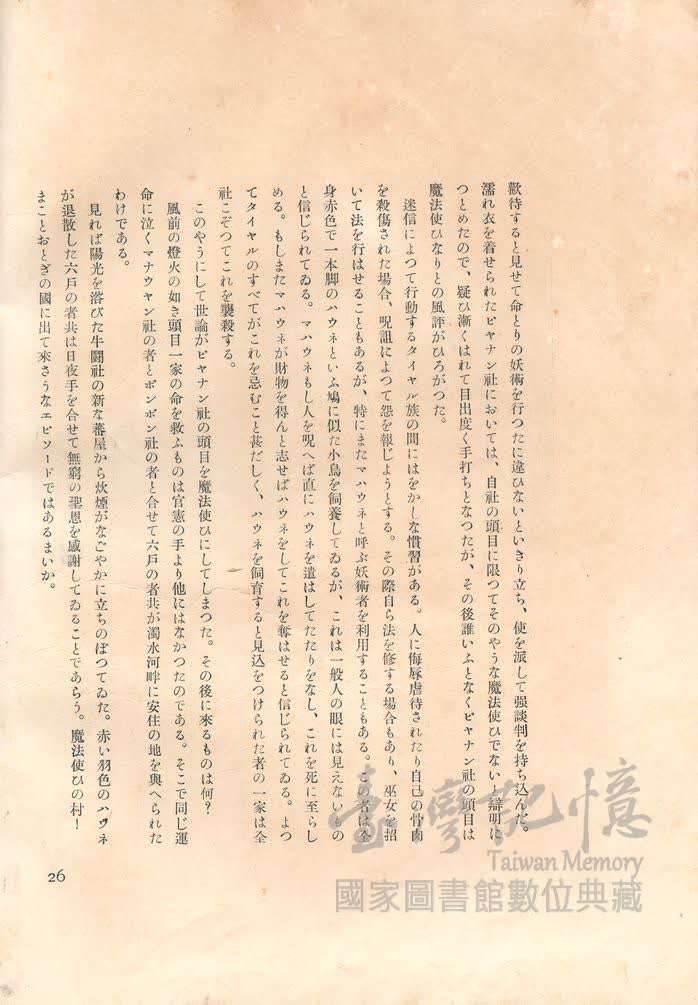 歡待すると見せて命とりの妖術を行つたに違ひないといきり立ち、使を派して强談判を持ち込んだ。
濡れ衣を着せられたピヤナン社においては、自社の頭目に限つてそのやうな魔法使ひでないと辯明に
つとめたので、疑ひ漸くはれて目出度く手打ちとなつたが、その後誰いふとなくピヤナン社の頭目は
魔法使ひなりとの風評がひろがつた。
迷信によつて行動するタイヤル族の間にはをかしな慣習がある。人に侮辱虐待されたり自己の骨肉
を殺傷された場合、呪詛によつて怨を報じようとする。その際自ら法を修する場合もあり、巫女を招
いて法を行はせることもあるが、特にまたマハウネと呼ぶ妖術者を利用することもある。この者は全
身赤色で一本脚のハウネといふ鳩に似た小鳥を飼養してゐるが、これは一般人の眼には見えないもの
と信じられてゐる。マハウネもし人を呪へば直にハウネを遣はしてたたりをなし、これを死に至らし
める。もしまたマハウネが財物を得んと志せばハウネをしてこれを奪はせると信じられてゐる。よつ
てタイヤルのすべてがこれを忌むこと甚だしく、ハウネを飼育すると見込をつけられた者の一家は全
社こぞつてこれを襲殺する。
このやうにして世論がピヤナン社の頭目を魔法使ひにしてしまつた。その後に來るものは何?
風前の燈火の如き頭目一家の命を救ふものは官憲の手より他にはなかつたのである。そこで同じ運
命に泣くマナウヤン社の者とボンボン社の者と合せて六戸の者共が濁水河畔に安住の地を與へられた
わけである。
見れば陽光を浴びた牛鬪社の新な蕃屋から炊煙がなごやかに立ちのぼつてゐた。赤い羽色のハウネ
が退散した六戸の者共は日夜手を合せて無窮の聖恩を感謝してゐることであらう。魔法使ひの村!
まことおとぎの國に出て來さうなエピソードではあるまいか。
26
臺灣記憶
Taiwan Memory
國家圖書館數位典藏